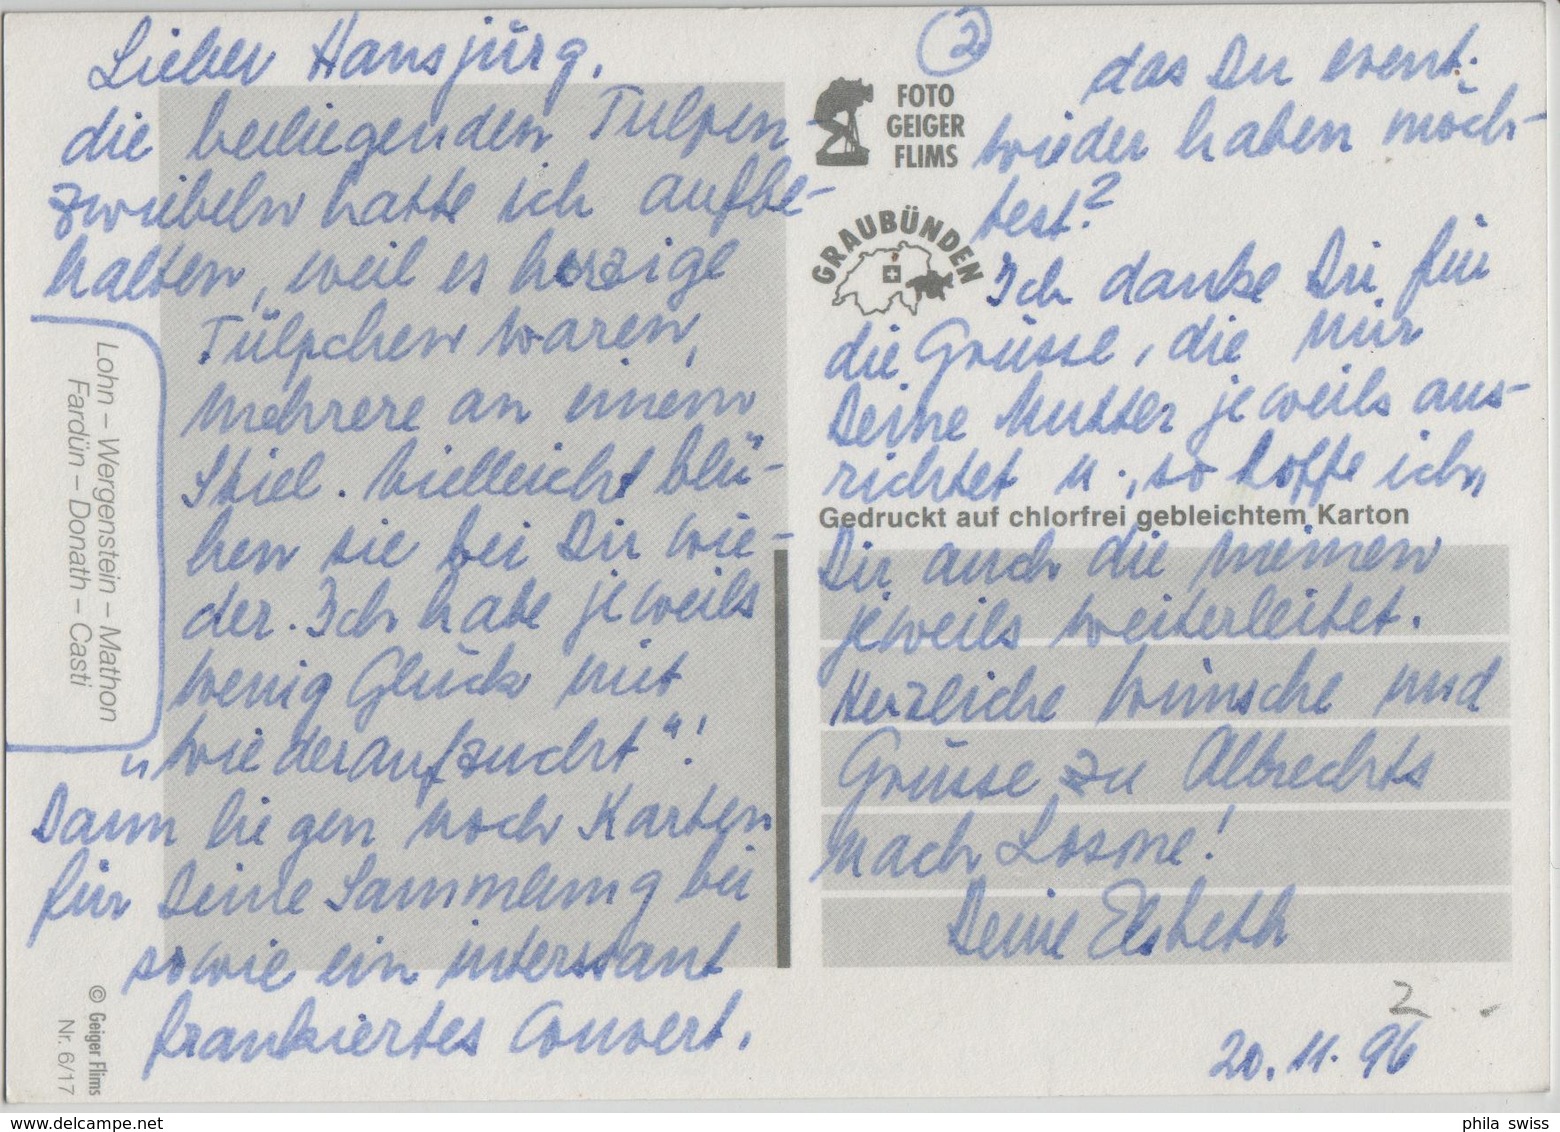 Lieber Hansjürg,
die beiliegenden Tulpen-
zwiebeln hatte ich aufbe-
halten, weil es herzige
Tülpchen waren,
mehrere an einem
Stiel. Vielleicht blü-
hen sie bei Dir wie-
der. Ich habe jeweils
wenig Glück mit
"wiederaufzucht"!
Dann liegen noch Karten
für Deine Sammlung bei
sowie ein interssant
frankiertes Couvert,
Lohn – Wergenstein – Mathon
Fardün – Donath – Casti
© Geiger Flims
Nr. 6/17
2
FOTO
GEIGER
FLIMS
GRAUBÜNDEN
das Du event.
wieder haben möch-
test?
Ich danke Dir für
die Grüsse, die mir
Deine Mutter jeweils aus-
richtet u., so hoffe ich,
Gedruckt auf chlorfrei gebleichtem Karton
Dir auch die meinen
jeweils weiterleitet.
Herzliche Wünsche und
Grüsse zu Albrechts
nach Losone!
Deine Elsbeth
2
20.11.96
phila swiss